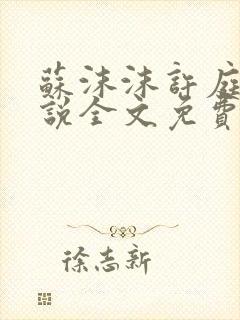 蘇沫沫許庭
說全文免費
徐志新